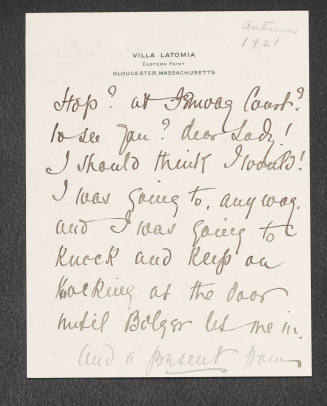 Autumn
1921
VILLA LATOMIA
EASTERN POINT
GLOUCESTER, MASSACHUSETTS
Stop? at Fenway Court?
To see you? dear Lady!
I should think I would!
I was going to, anyway.
and I was going to
knock and keep on
knocking at the door
until Bolger let me in.
And a present from